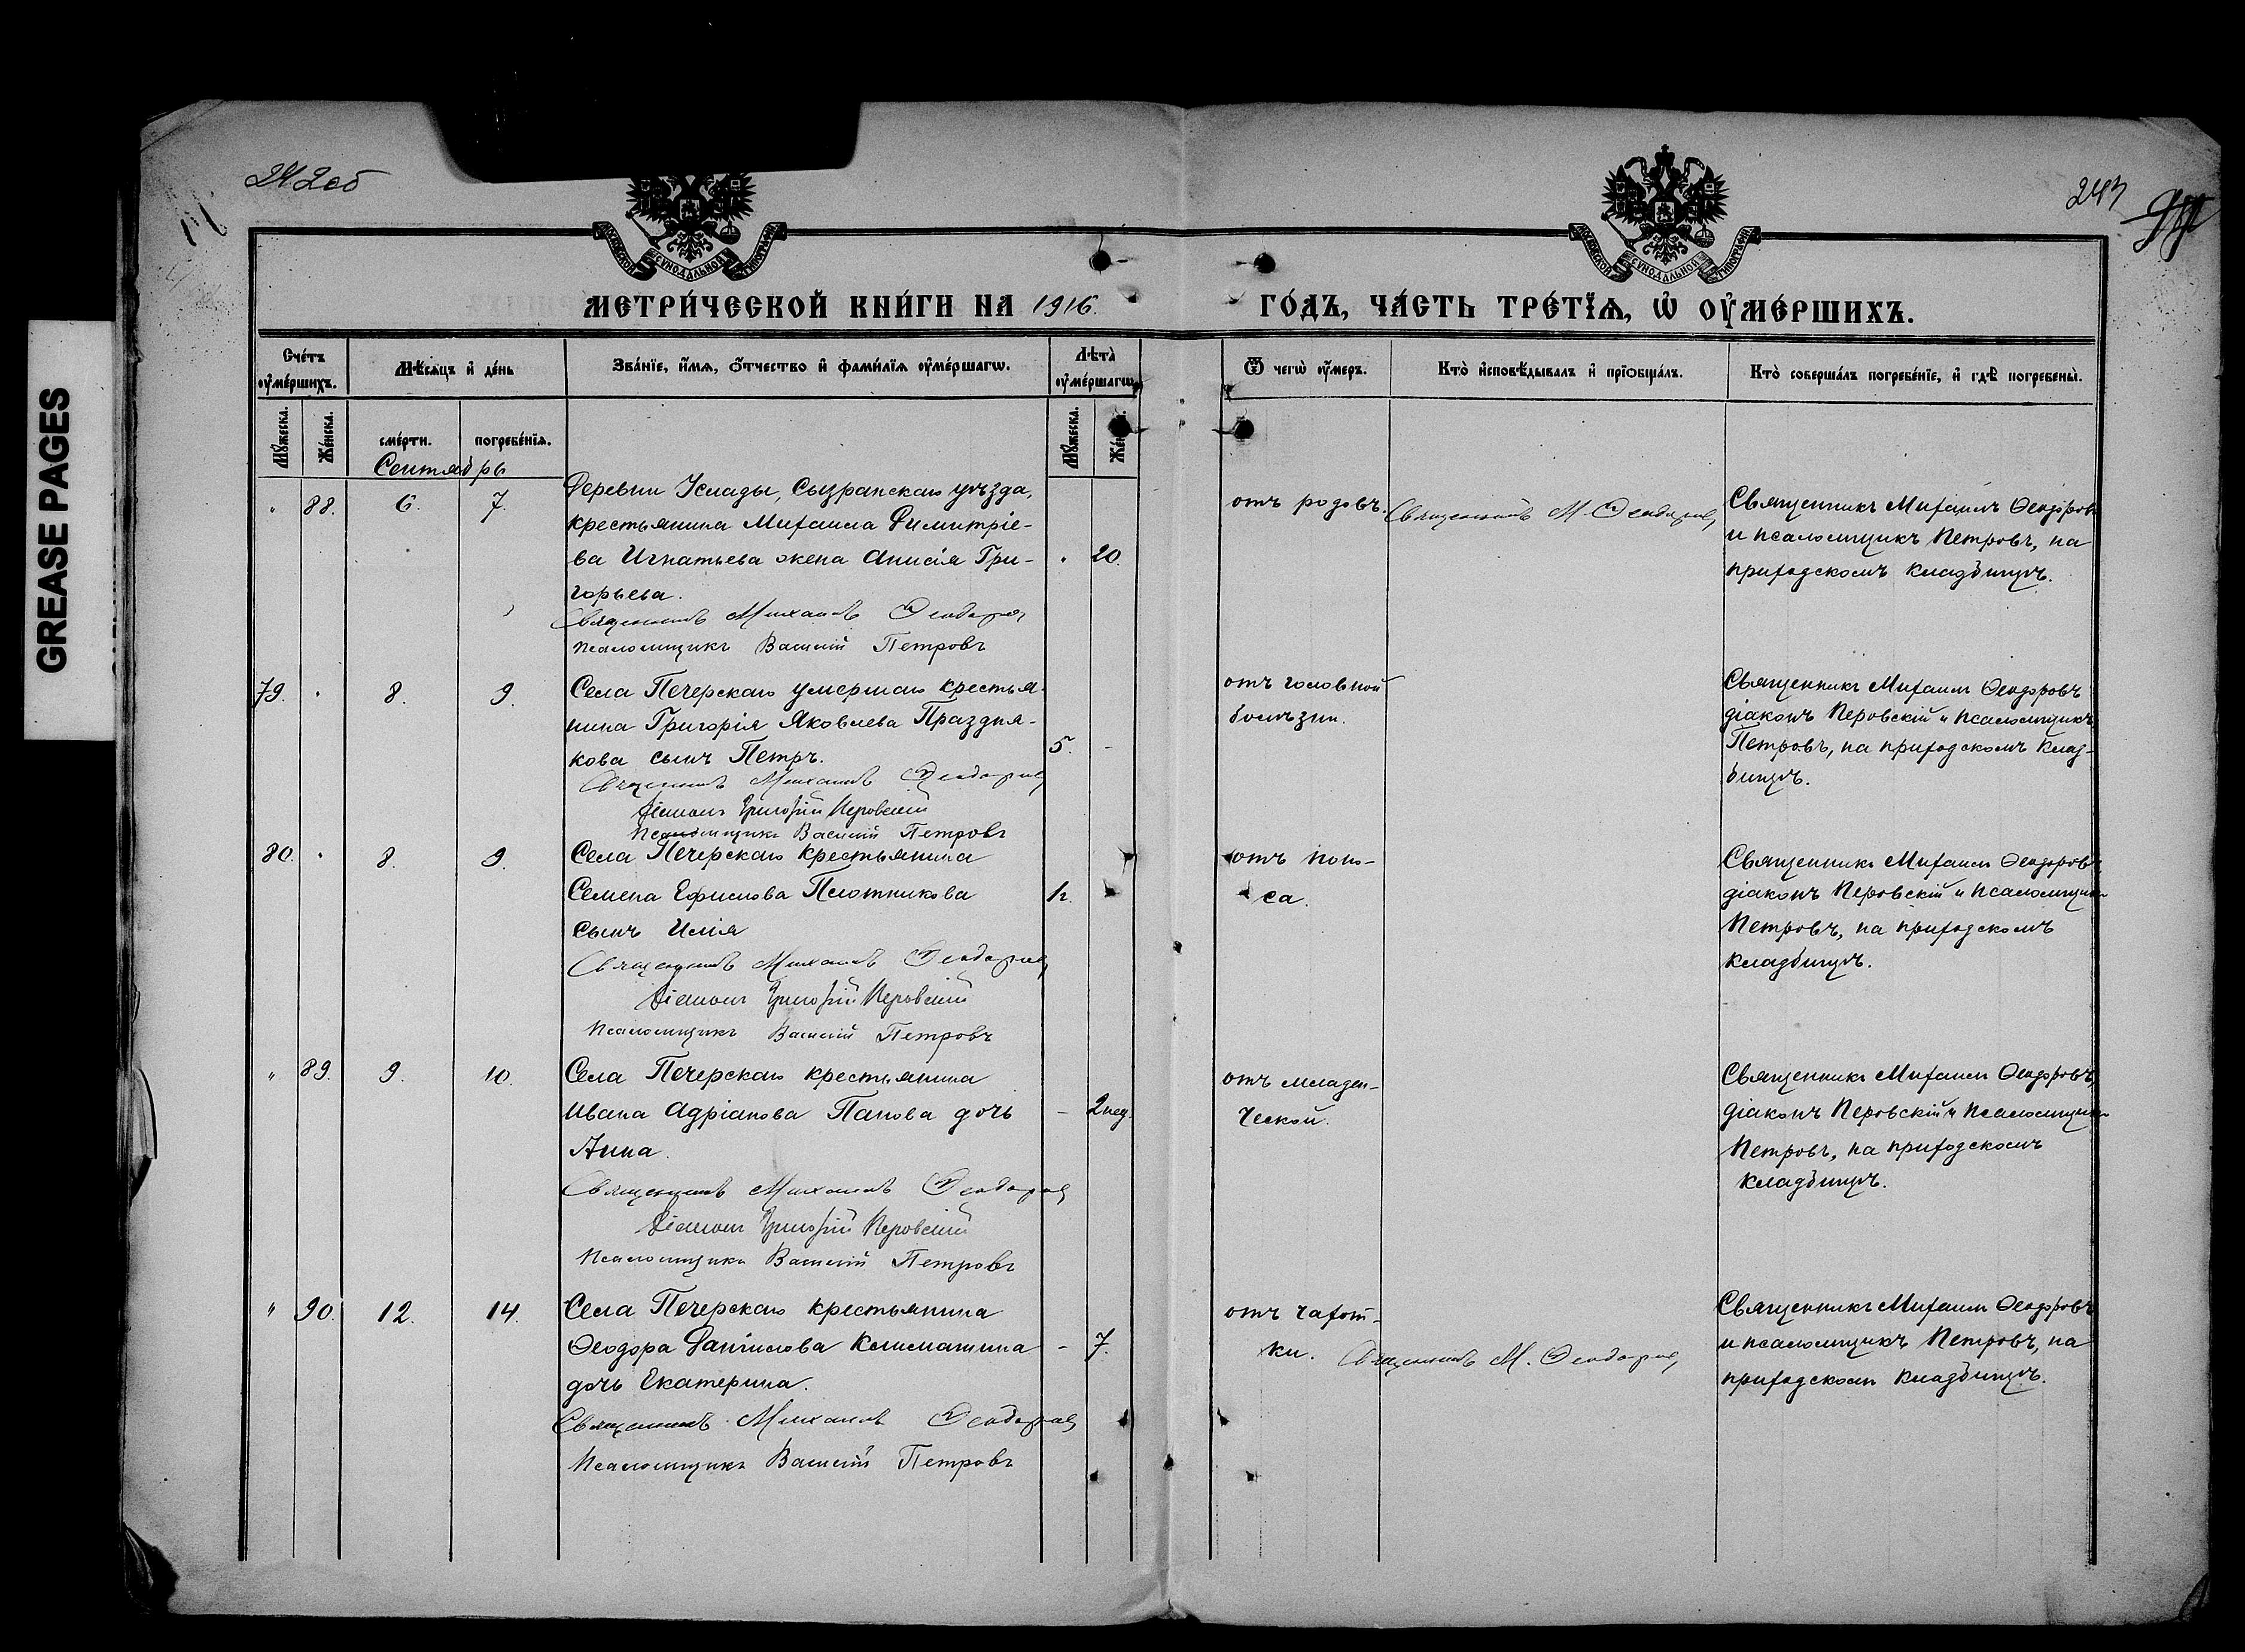 242об
243
GREASE PAGES
МОСКОВСКОЙ СѴНОДАЛЬНОЙ ТИПОГРАФІИ
МОСКОВСКОЙ СѴНОДАЛЬНОЙ ТИПОГРАФІИ
МЕТРИ́ЧЕСКОЙ КНИ́ГИ НА 1916. ГО́ДЪ, ЧА́СТЬ ТРЕ́ТЇѦ, Ѡ҆ ОУ҆МЕ́РШИХЪ.
Сче́тъ оу҆ме́ршихъ.
Мѣ́сѧцъ и҆ де́нь
Зва́нїе, и҆́мѧ, ѻ҆́тчество и҆ фами́лїѧ оу҆ме́ршагѡ.
Лѣ́та̀ оу҆ме́ршагѡ
Ѿ чегѡ̀ оу҆́меръ.
Кто̀ и҆сповѣ́дывалъ и҆ прїѻбща́лъ.
Кто̀ соверша́лъ погребе́нїе, и҆ гдѣ̀ погребены̀.
Мꙋ́жеска.
Же́нска.
сме́рти.
погребе́нїѧ.
Мꙋ́жеска.
Же́н
Сентябрь
" 88. 6. 7.
Деревни Услады, Сызранскаго уѣзда,
крестьянина Михаила Димитріе-
ва Игнатьева жена Анисія Гри-
горьева.
" 20.
Священникъ Михаилъ Ѳеодоровъ
псаломщикъ Василій Петровъ
отъ родовъ.
Священникъ М. Ѳеодоровъ
Священникъ Михаилъ Ѳеодоровъ
и псаломщикъ Петровъ, на
приходскомъ кладбищѣ.
79. " 8. 9.
Села Печерскаго умершаго крестья-
нина Григорія Яковлева Праздня-
кова сынъ Петръ.
5. -
Священникъ Михаилъ Ѳеодоровъ
Діаконъ Григорій Перовскій
Псаломщикъ Василій Петровъ
отъ головной
болѣзни.
Священникъ Михаилъ Ѳеодоровъ
діаконъ Перовскій и псаломщикъ
Петровъ, на приходскомъ клад-
бищѣ.
80. " 8. 9.
Села Печерскаго крестьянина
Семена Ефимова Плотникова
сынъ Илія
Священникъ Михаилъ Ѳеодоровъ
Діаконъ Григорій Перовскій
Псаломщикъ Василій Петровъ
отъ поно-
са.
Священникъ Михаилъ Ѳеодоровъ,
діаконъ Перовскій и псаломщикъ
Петровъ, на приходскомъ
кладбищѣ.
" 89. 9. 10.
Села Печерскаго крестьянина
Ивана Адріанова Панова дочь
Анна.
- 2 нед.
Священникъ Михаилъ Ѳеодоровъ
Діаконъ Григорій Перовскій
Псаломщикъ Василій Петровъ
отъ младен-
ческой.
Священникъ Михаилъ Ѳеодоровъ,
діаконъ Перовскій и псаломщикъ
Петровъ, на приходскомъ
кладбищѣ.
" 90. 12. 14.
Села Печерскаго крестьянина
Ѳеодора Даніилова Климашина
дочь Екатерина.
- 7.
Священникъ Михаилъ Ѳеодоровъ
Псаломщикъ Василій Петровъ
отъ чахот-
ки.
Священникъ М. Ѳеодоровъ
Священникъ Михаилъ Ѳеодоровъ
и псаломщикъ Петровъ, на
приходскомъ кладбищѣ.